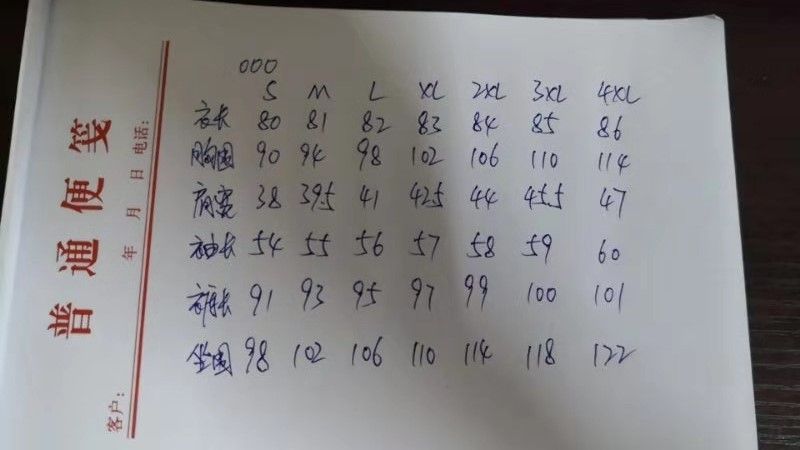 普通便笺
客户:
年 月 日 电话:
000
S M L XL 2XL 3XL 4XL
衣长 80 81 82 83 84 85 86
胸围 90 94 98 102 106 110 114
肩宽 38 395 41 425 44 455 47
袖长 54 55 56 57 58 59 60
裤长 91 93 95 97 99 100 101
坐围 98 102 106 110 114 118 122